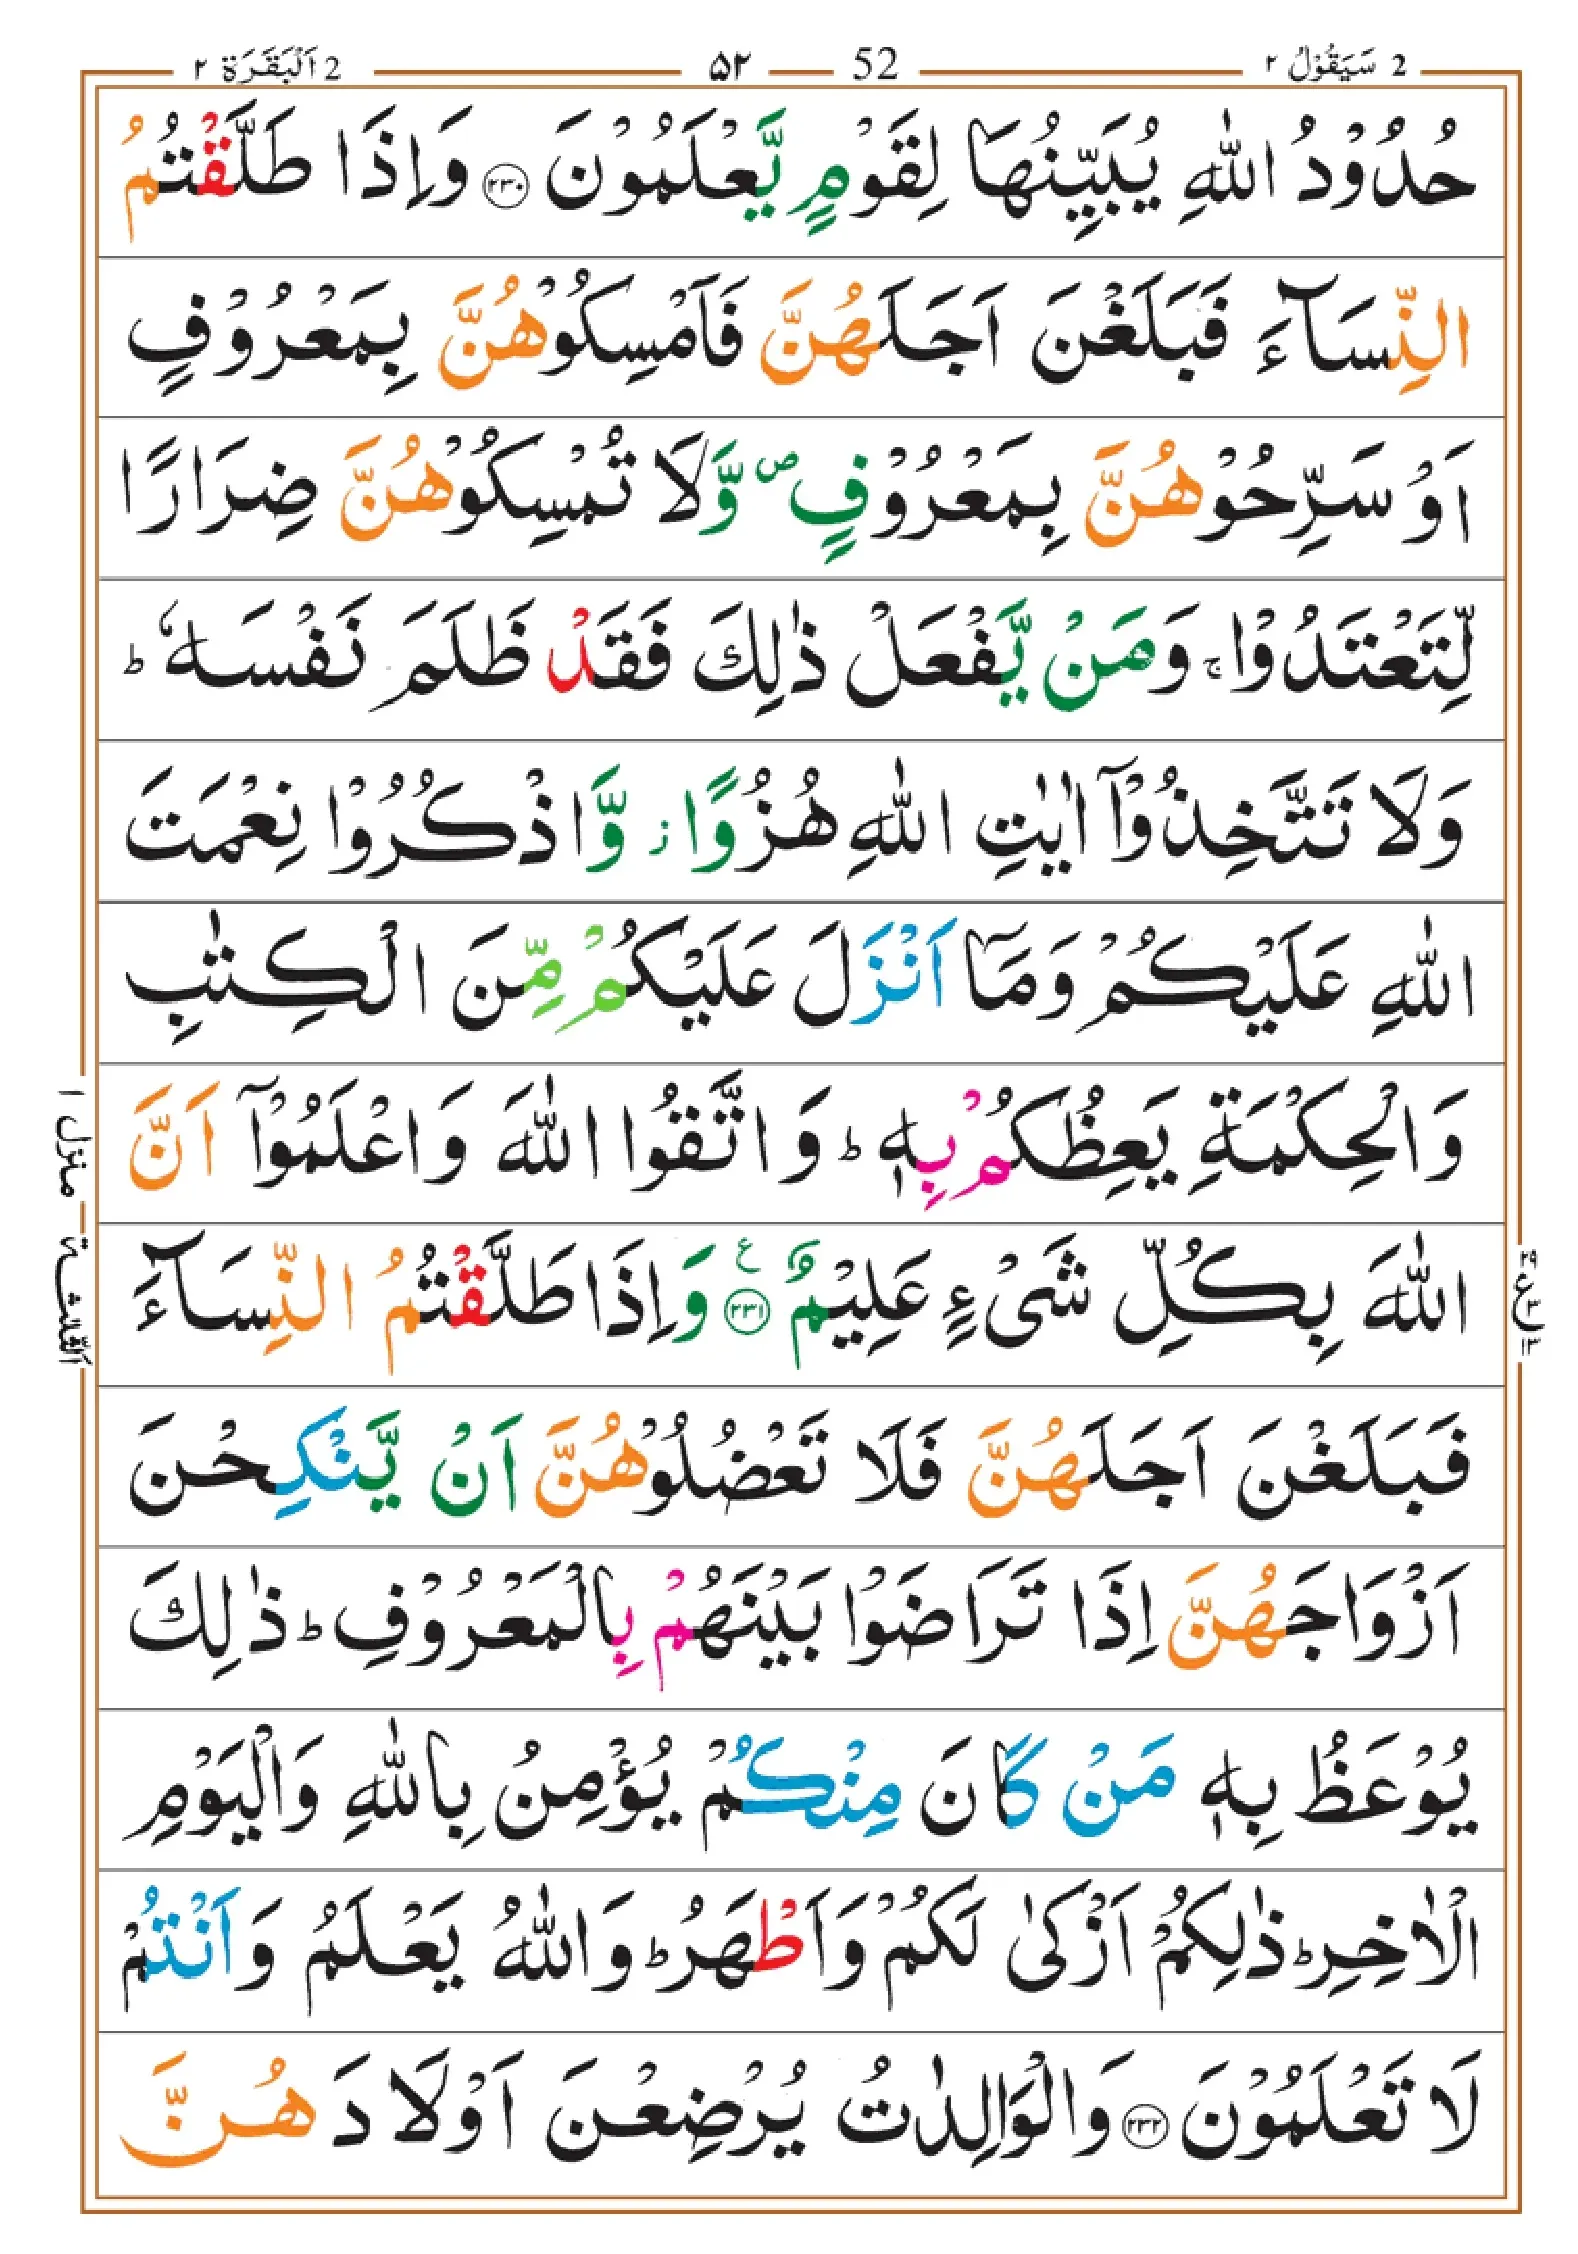 2 سَيَقُوْلُ ٢
52 ۵۲
2 اَلْبَقَرَة ٢
حُدُوْدُ اللّٰهِ يُبَيِّنُهَا لِقَوْمٍ يَّعْلَمُوْنَ ﴿٢٣٠﴾ وَاِذَا طَلَّقْتُمُ
النِّسَآءَ فَبَلَغْنَ اَجَلَهُنَّ فَاَمْسِكُوْهُنَّ بِمَعْرُوْفٍ
اَوْ سَرِّحُوْهُنَّ بِمَعْرُوْفٍ ۖ وَّلَا تُمْسِكُوْهُنَّ ضِرَارًا
لِّتَعْتَدُوْا ۚ وَمَنْ يَّفْعَلْ ذٰلِكَ فَقَدْ ظَلَمَ نَفْسَهٗ ؕ
وَلَا تَتَّخِذُوْٓا اٰيٰتِ اللّٰهِ هُزُوًا ؗ وَّاذْكُرُوْا نِعْمَتَ
اللّٰهِ عَلَيْكُمْ وَمَآ اَنْزَلَ عَلَيْكُمْ مِّنَ الْكِتٰبِ
وَالْحِكْمَةِ يَعِظُكُمْ بِهٖ ؕ وَاتَّقُوا اللّٰهَ وَاعْلَمُوْٓا اَنَّ
اللّٰهَ بِكُلِّ شَىْءٍ عَلِيْمٌ ﴿٢٣١﴾ ع وَاِذَا طَلَّقْتُمُ النِّسَآءَ
فَبَلَغْنَ اَجَلَهُنَّ فَلَا تَعْضُلُوْهُنَّ اَنْ يَّنْكِحْنَ
اَزْوَاجَهُنَّ اِذَا تَرَاضَوْا بَيْنَهُمْ بِالْمَعْرُوْفِ ؕ ذٰلِكَ
يُوْعَظُ بِهٖ مَنْ كَانَ مِنْكُمْ يُؤْمِنُ بِاللّٰهِ وَالْيَوْمِ
الْاٰخِرِ ؕ ذٰلِكُمْ اَزْكٰى لَكُمْ وَاَطْهَرُ ؕ وَاللّٰهُ يَعْلَمُ وَاَنْتُمْ
لَا تَعْلَمُوْنَ ﴿٢٣٢﴾ وَالْوَالِدٰتُ يُرْضِعْنَ اَوْلَادَهُنَّ
منزل ١
اَلثَّلٰثَة
٢٩ ع ٣ ١٣